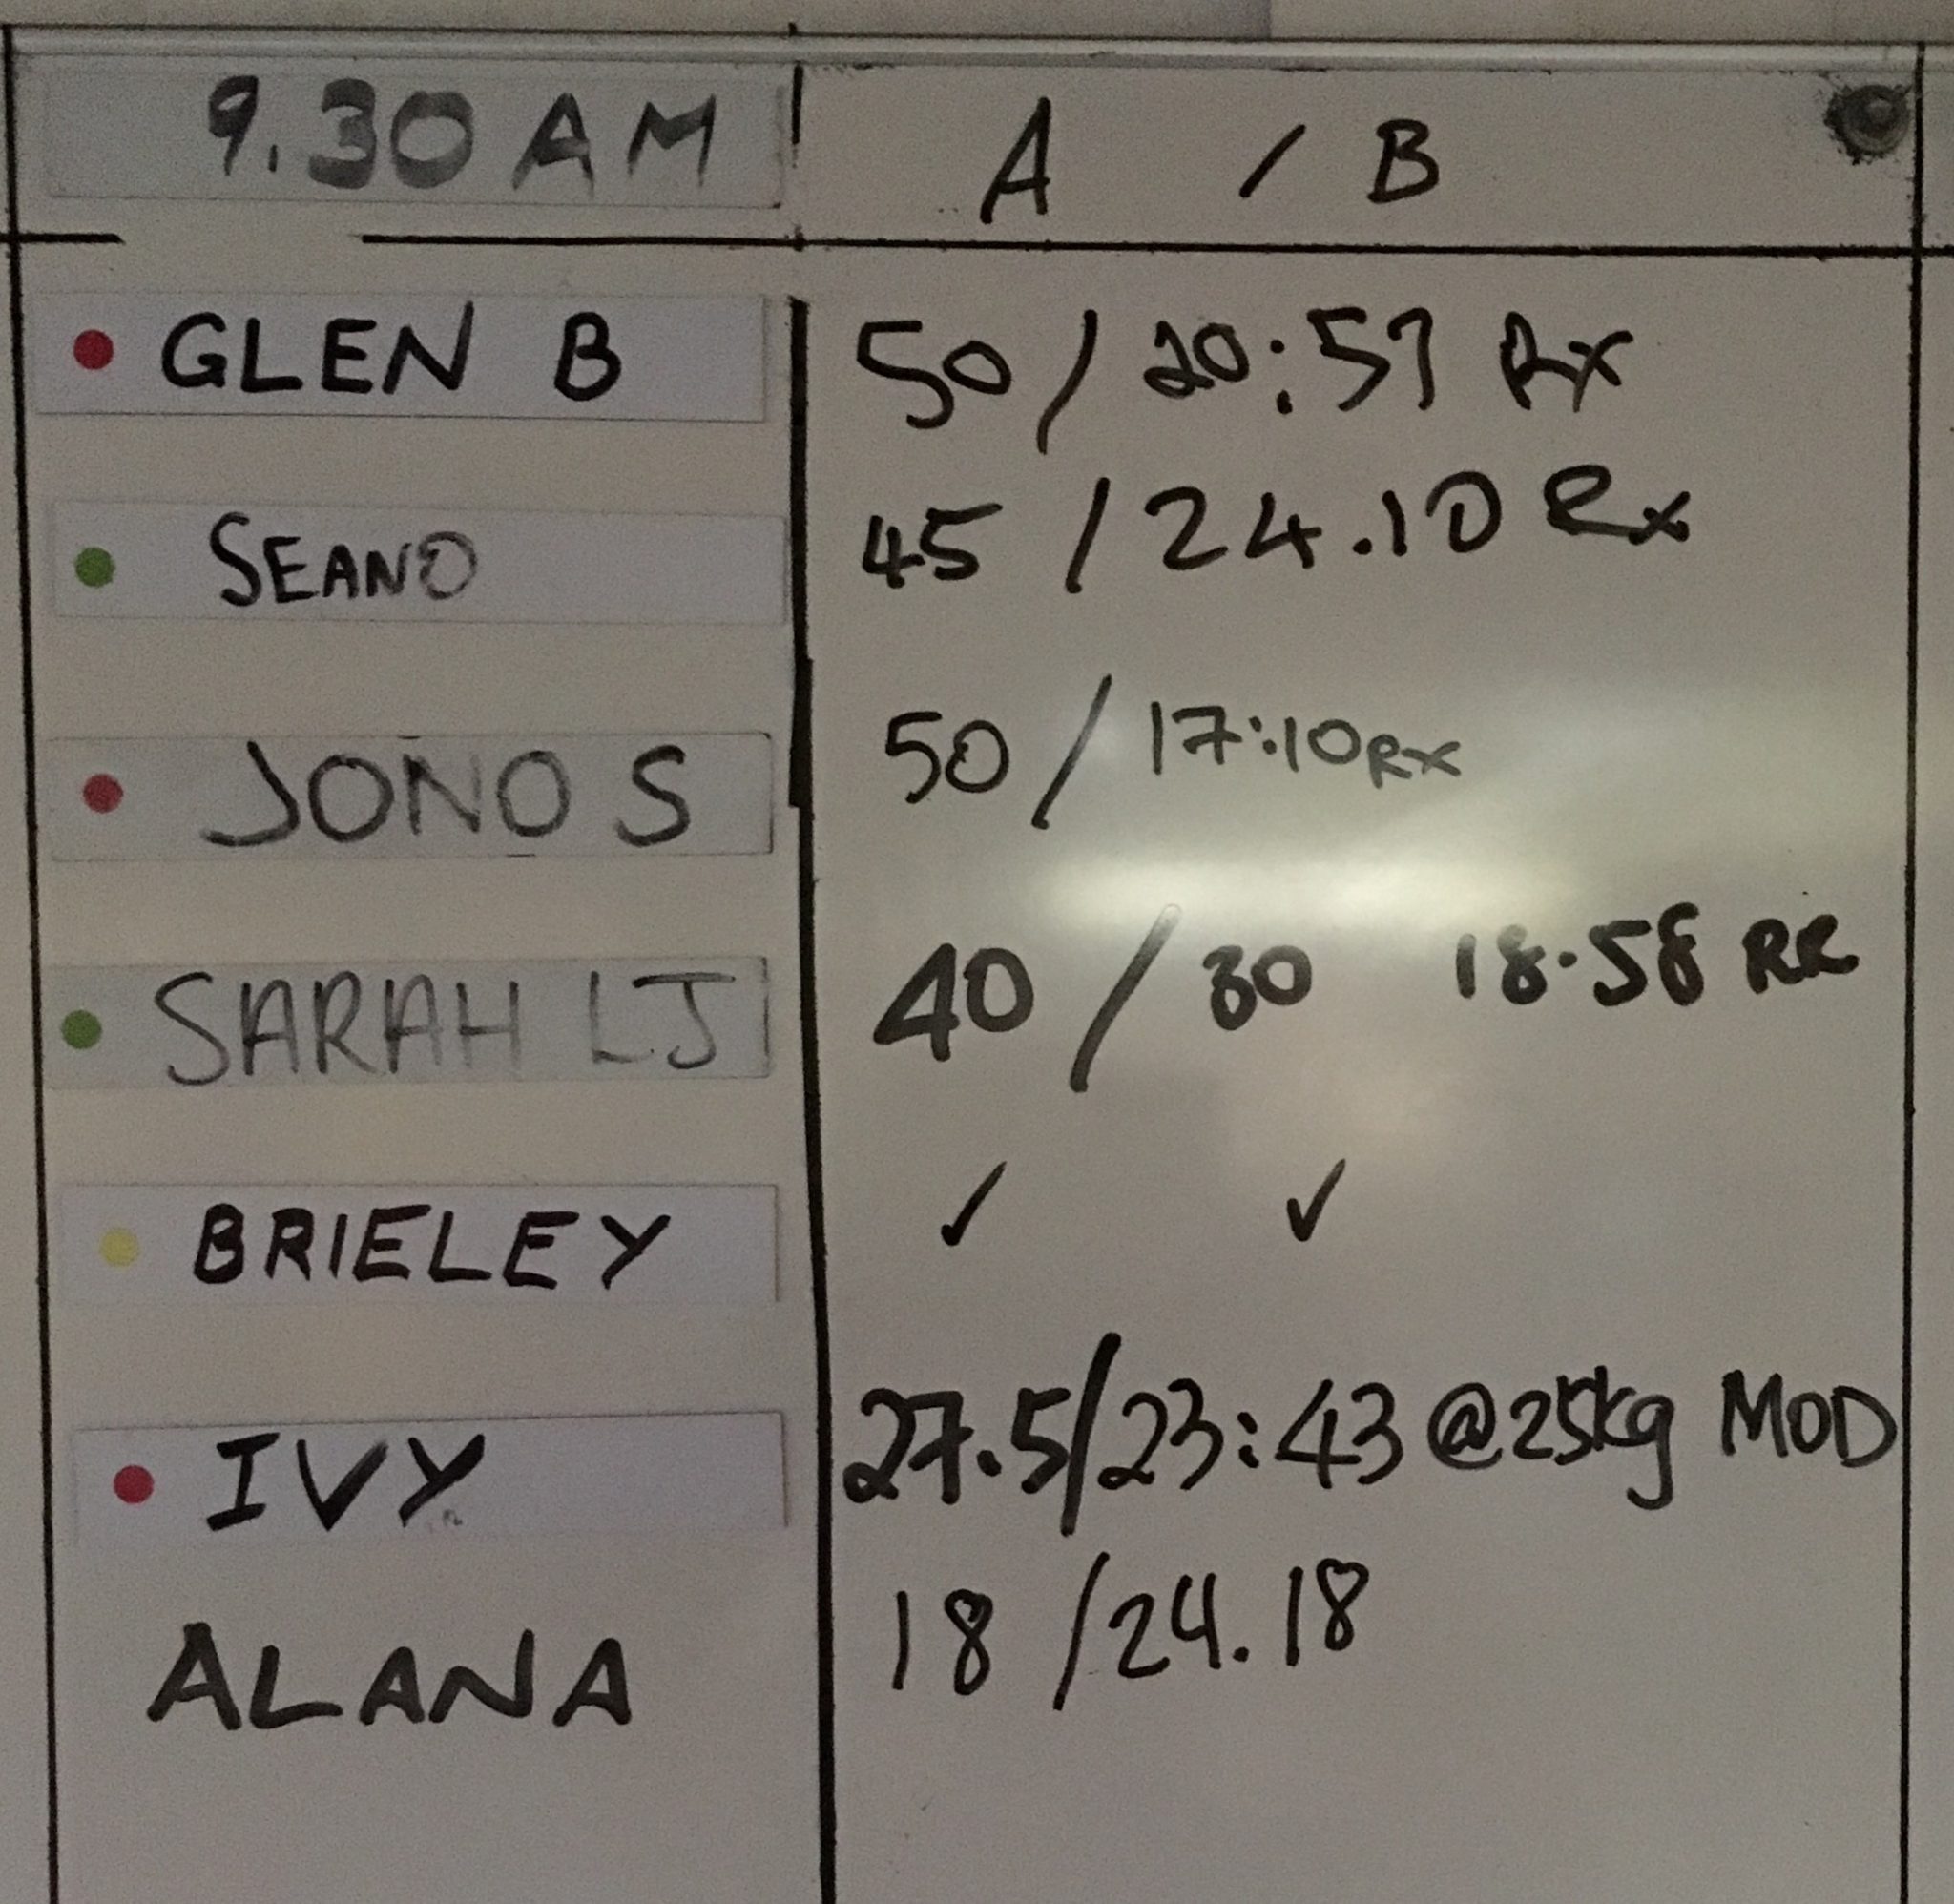 9.30 AM A / B
GLEN B 50 / 20:57 Rx
SEANO 45 / 24.10 Rx
JONO S 50 / 17:10 RX
SARAH LJ 40 / 30 18.58
BRIELEY ✓ ✓
IVY 27.5/23:43 @25kg MOD
ALANA 18 /24.18